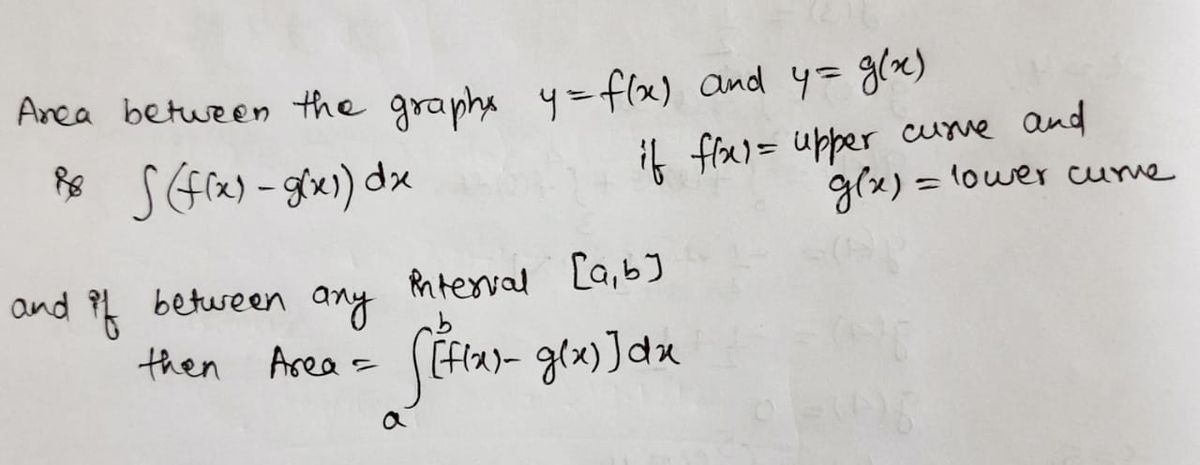 Area between the graphs y = f(x) and y = g(x)
is ∫(f(x) - g(x)) dx if f(x) = upper curve and
g(x) = lower curve
and if between any interval [a,b]
then Area = ∫ₐᵇ [f(x) - g(x)] dx